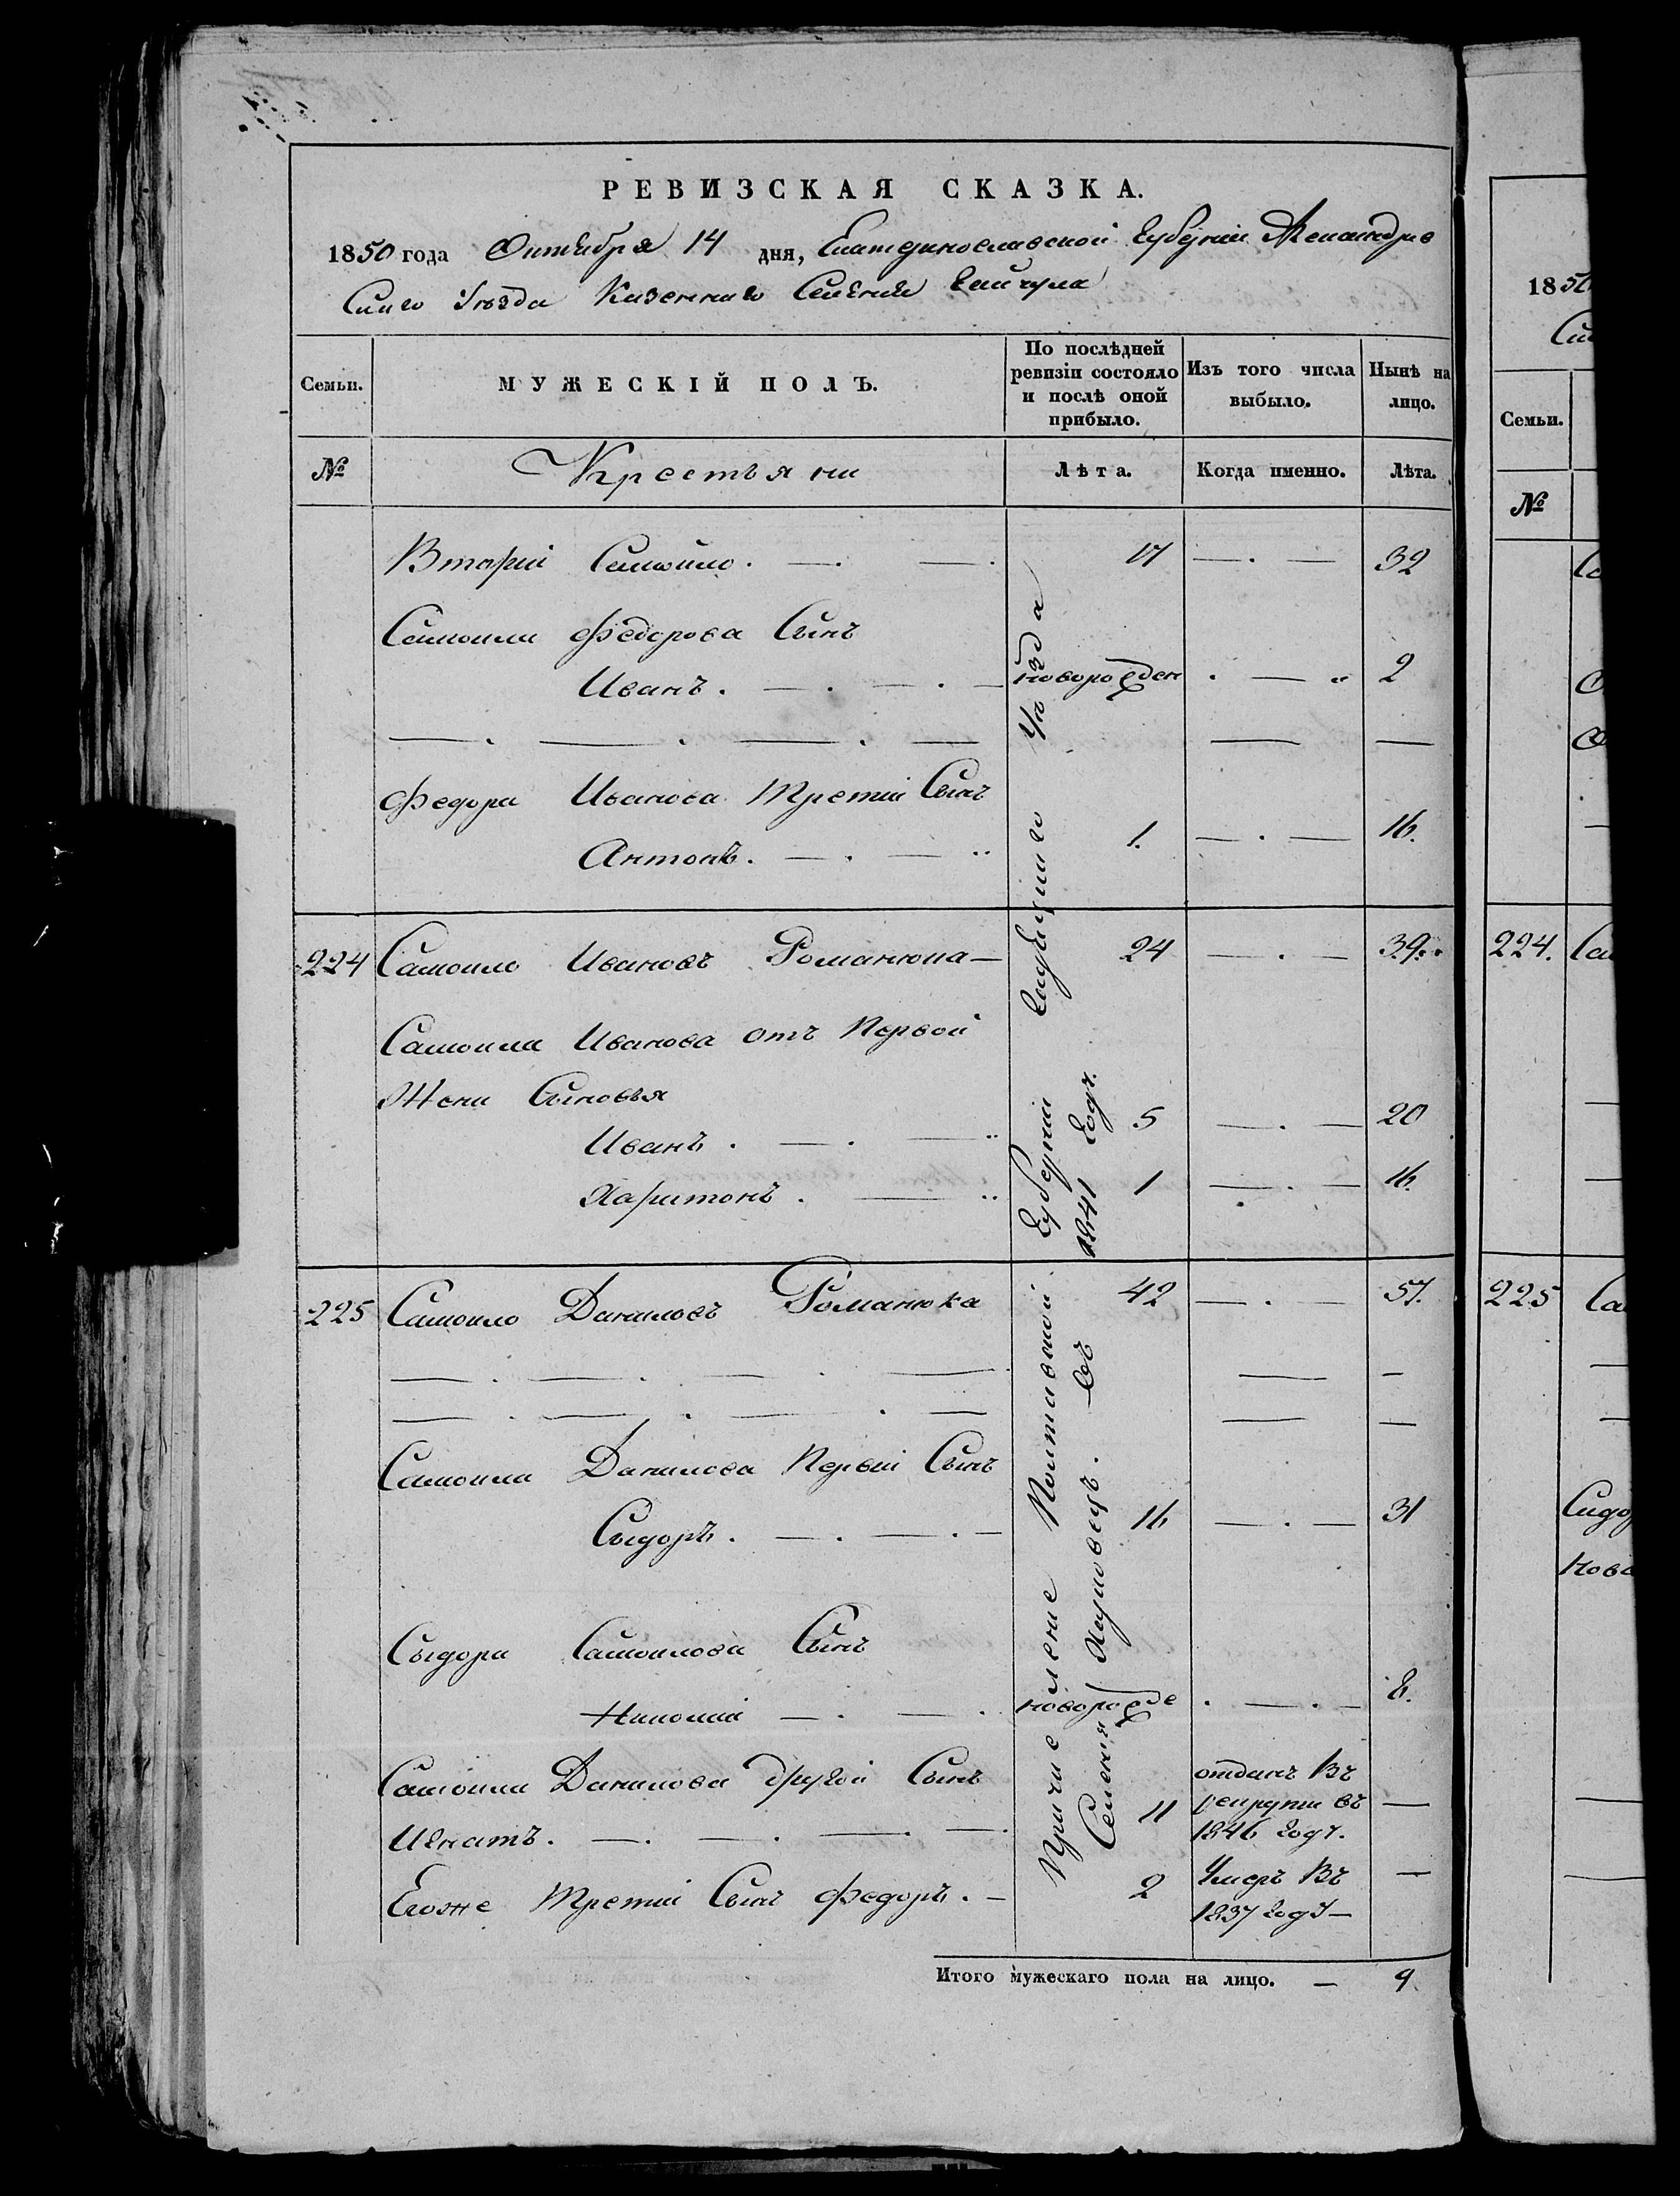 РЕВИЗСКАЯ СКАЗКА.
1850 года Октября 14 дня, Екатеринославской Губернии Александров
Скаго Уѣзда Казеннаго Селения Гайчула
Семьи.
МУЖЕСКІЙ ПОЛЪ.
По послѣдней
ревизіи состояло
и послѣ оной
прибыло.
Изъ того числа
выбыло.
Нынѣ на
лицо.
№
Крестьяни
Лѣта.
Когда именно.
Лѣта.
Вторій Самойло. — . — . 17 — . — 32
Самоила Федорова Сынъ
Иванъ . — . — . — новорожден . — „ 2
— . — . — . — — —
Федора Иванова Третій Сынъ
Антонъ . — . — .. 1. — . — 16.
224 Самоило Ивановъ Романюка — 24 — . — 39.
Самоила Иванова отъ Первой
Жени Сыновья
Иванъ . — . — „ 5 — . — 20
Харитонъ . — „ 1 — . — 16.
225 Самоило Даниловъ Романюка 42 — . — 57.
— . — . — . — — —
— . — . — . — — —
Самоила Данилова Первій Сынъ
Сыдоръ . — . — . — 16 — . — 31
Сыдора Самоилова Сынъ
Николай — . — . новорожде . — . — 8.
Самоила Данилова Другой Сынъ
Игнатъ . — . — . — . — . 11
отданъ Въ
рекруты въ —
1846 году.
Егоже Третій Сынъ Федоръ . — 2
Умеръ Въ —
1837 году —
Причисление Полтавской Губернии Гадяцкаго Уѣзда
Селения въ 1841 Году.
Итого мужескаго пола на лицо. — 9.
1850
Семьи.
№
224.
225
Сидор
Ново